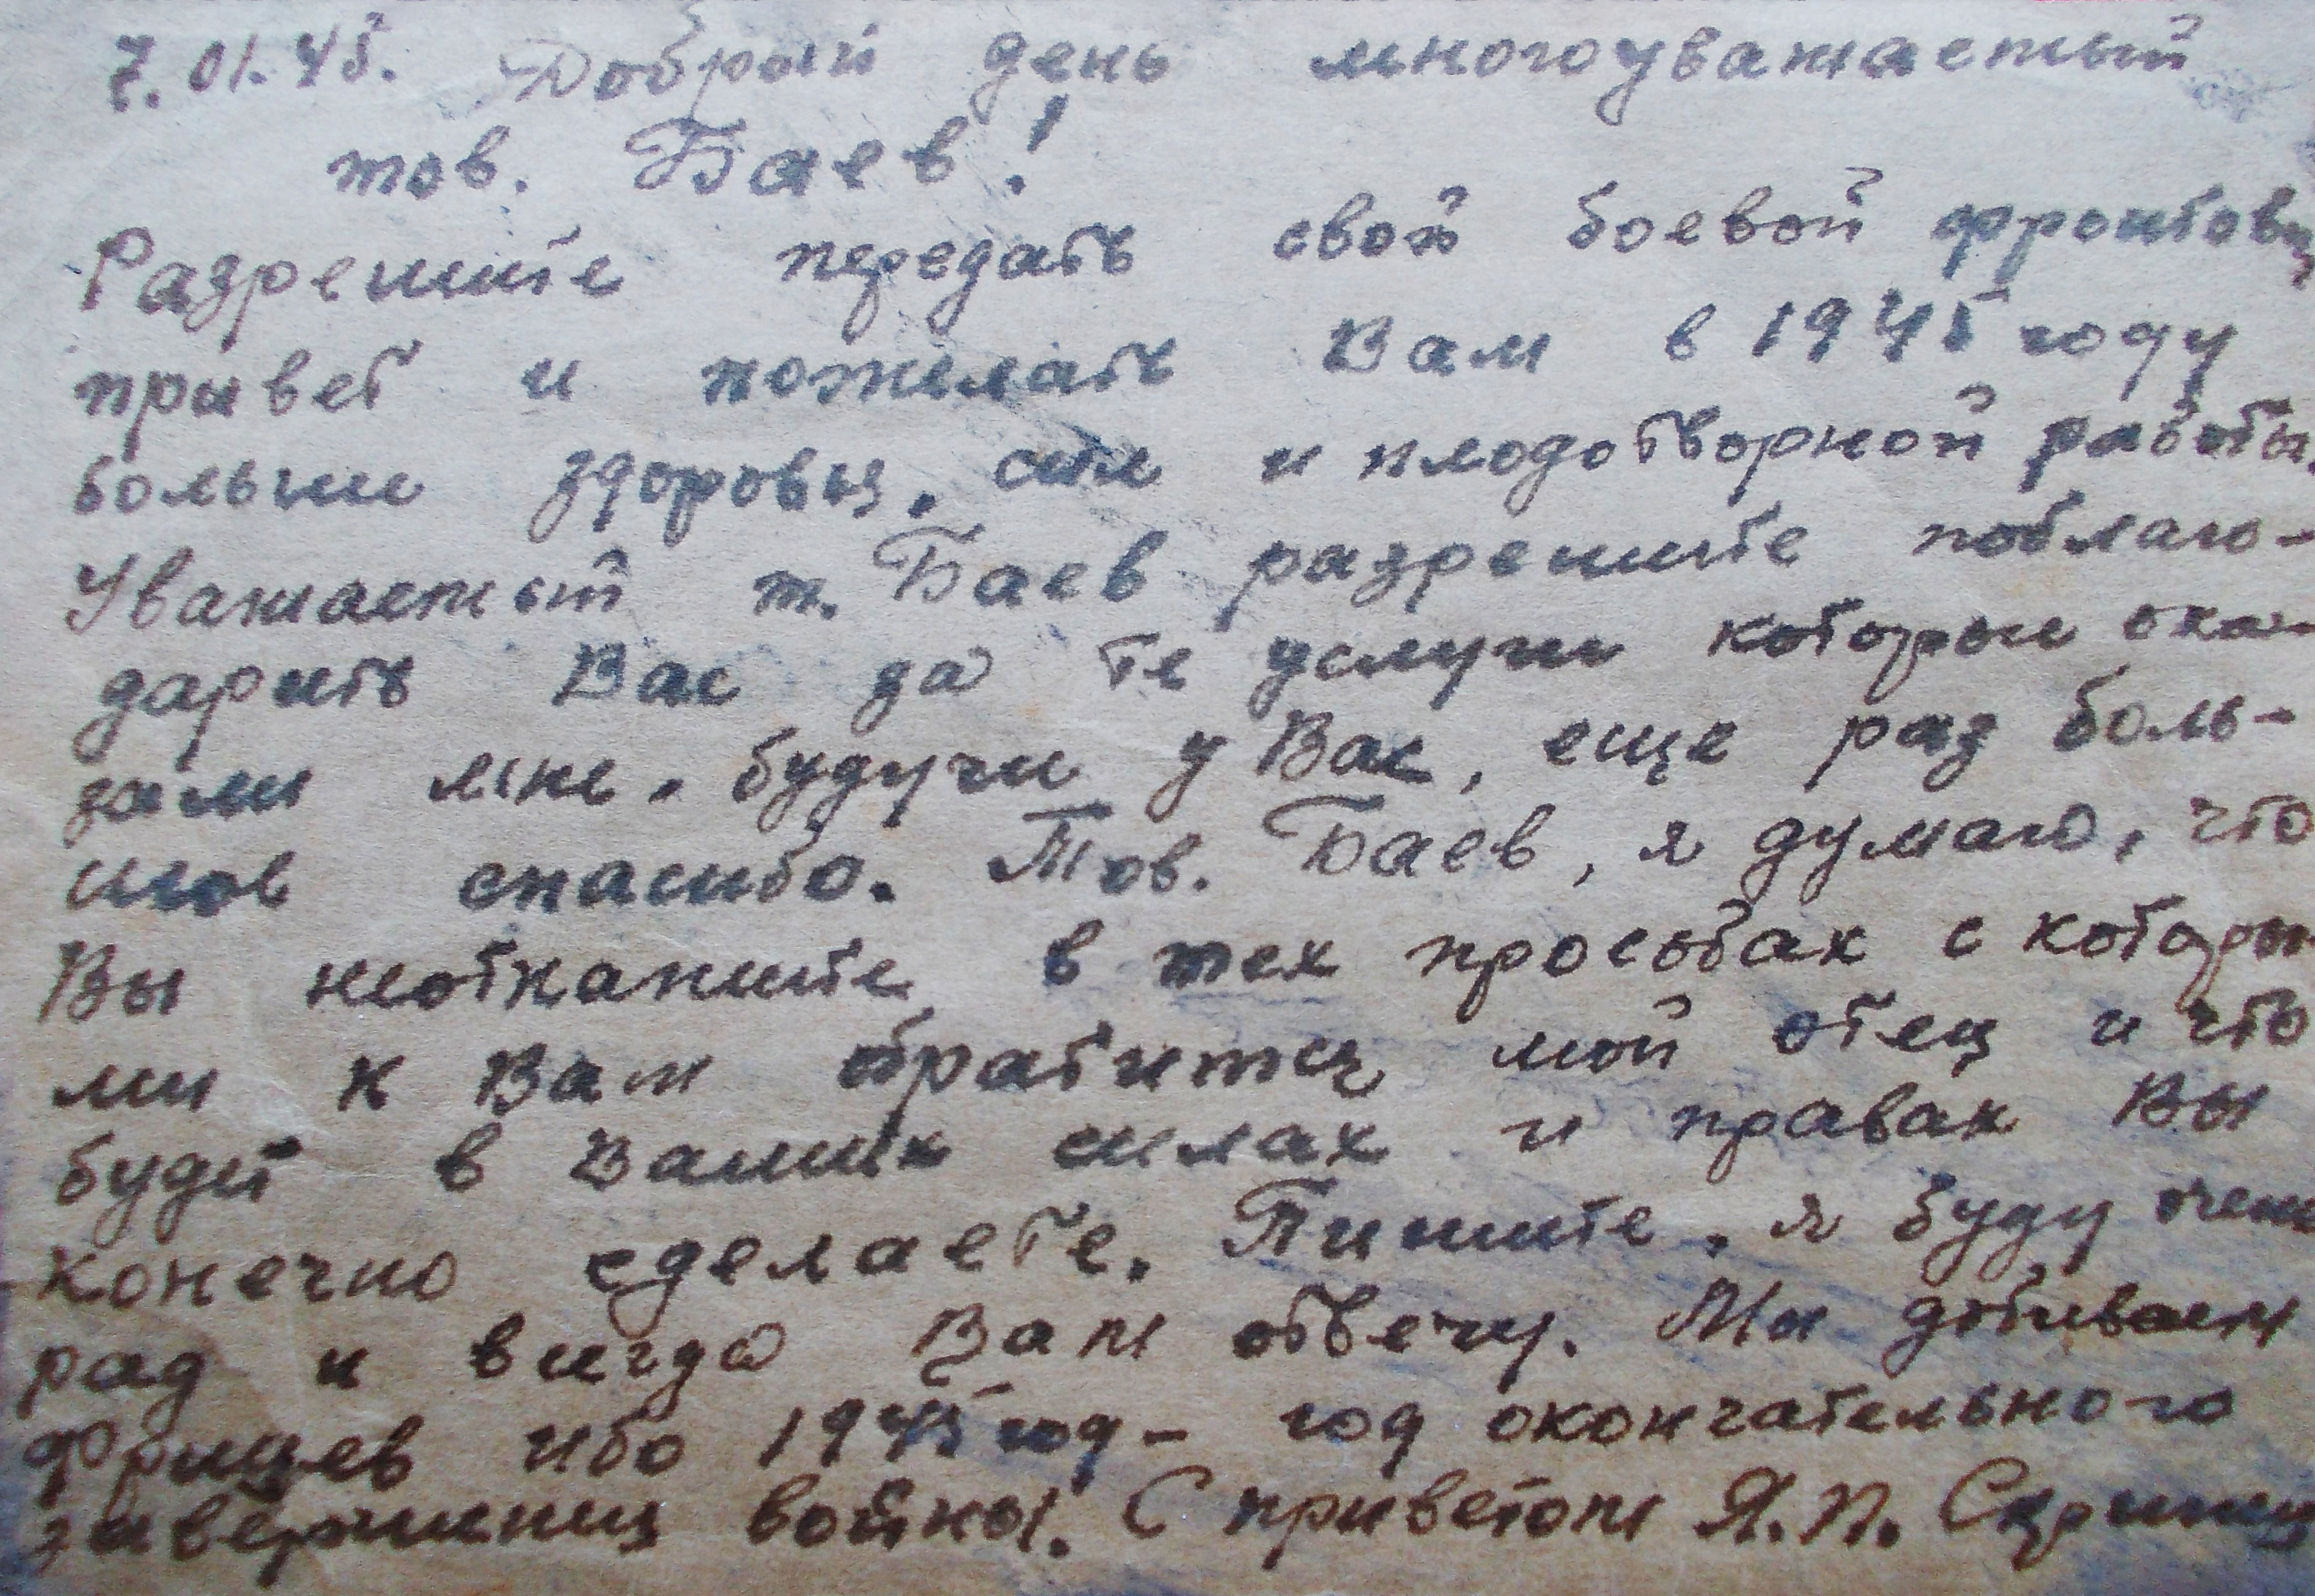 7.01.45. Добрый день многоуважаемый
тов. Баев!
Разрешите передать свой боевой фронтовы
привет и пожелать Вам в 1945 году
больше здоровья, сил и плодотворной работы.
Уважаемый т. Баев разрешите поблаго-
дарить Вас за те услуги которые ока-
зали мне, будучи у Вас, еще раз боль-
шое спасибо. Тов. Баев, я думаю, что
Вы неоткажите в тех просьбах с которы
ми к Вам обратится мой отец и что
будет в Ваших силах и правах Вы
конечно сделаете. Пишите, я буду очень
рад и всегда Вам отвечу. Мы добиваем
фрицев ибо 1945 год - год окончательного
завершения войны. С приветом Я. П.